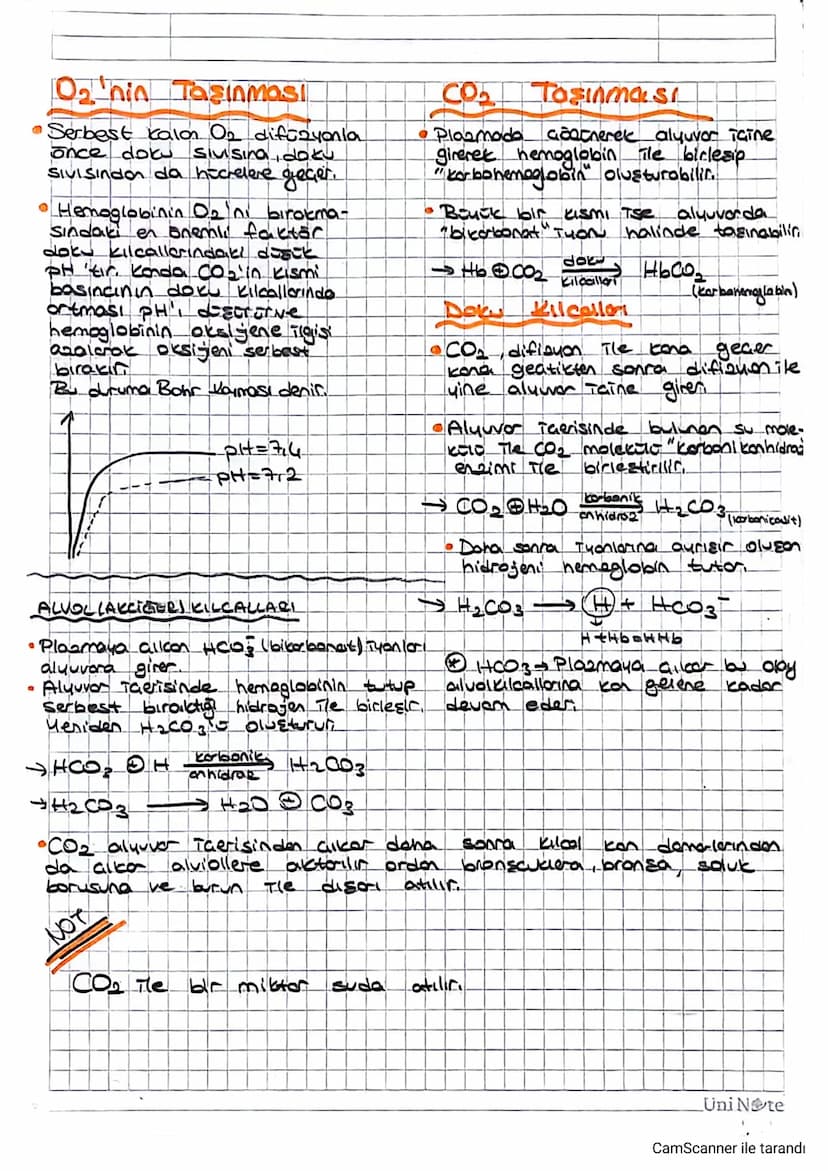 O2'nin Taşınması
• Serbest kalan O2 difüzyonla
önce doku sıvısına, doku
sıvısından da hücrelere geçer.
• Hemoglobinin O2'ni bırakma-
sındaki en önemli faktör
doku kılcallarındaki düşük
pH 'tır. Kanda CO2'in kısmi
basıncının doku kılcallarında
artması pH'ı düşürür ve
hemoglobinin oksijene ilgisi
azalarak oksijeni serbest
bırakır.
Bu duruma Bohr kayması denir.
pH=7,4
pH=7,2
CO2 Taşınması
• Plazmada çözünerek alyuvar içine
girerek hemoglobin ile birleşip
"karbohemoglobin" oluşturabilir.
• Büyük bir kısmı ise alyuvarda
"bikarbonat" iyonu halinde taşınabilir.
→ Hb ⊕ CO2 doku kılcalları → HbCO2
(karbohemoglobin)
Doku Kılcalları
• CO2, difizyon ile kana geçer
kana geçtikten sonra difizyon ile
yine alyuvar içine girer.
• Alyuvar içerisinde bulunan su mole-
külü ile CO2 molekülü "karbonikanhidraz
enzimi ile birleştirilir.
→ CO2 ⊕ H2O karbonik anhidraz → H2CO3 (karbonicasit)
• Daha sonra iyonlarına ayrışır oluşan
hidrojeni hemoglobin tutar.
→ H2CO3 → H + HCO3⁻
H+Hb→HHb
⊕ HCO3→ Plazmaya çıkar bu olay
alvolkılcallarına kan gelene kadar
devam eder.
ALVOL (AKCİĞER) KILCALLARI
• Plazmaya çıkan HCO3⁻ (bikarbonat) iyonları
alyuvara girer.
• Alyuvar içerisinde hemoglobinin tutup
serbest bıraktığı hidrojen ile birleşir.
Yeniden H2CO3'ü oluşturur.
→ HCO3 ⊕ H karbonik anhidraz → H2CO3
→ H2CO3 → H2O ⊕ CO3
• CO2 alyuvar içerisinden çıkar daha sonra kılcal kan damarlarından
da çıkar alviollere aktarılır ordan bronşcuklara, bronşa, soluk
borusuna ve burun ile dışarı atılır.
NOT
CO2 ile bir miktar suda atılır.
UniNote
CamScanner ile tarandı